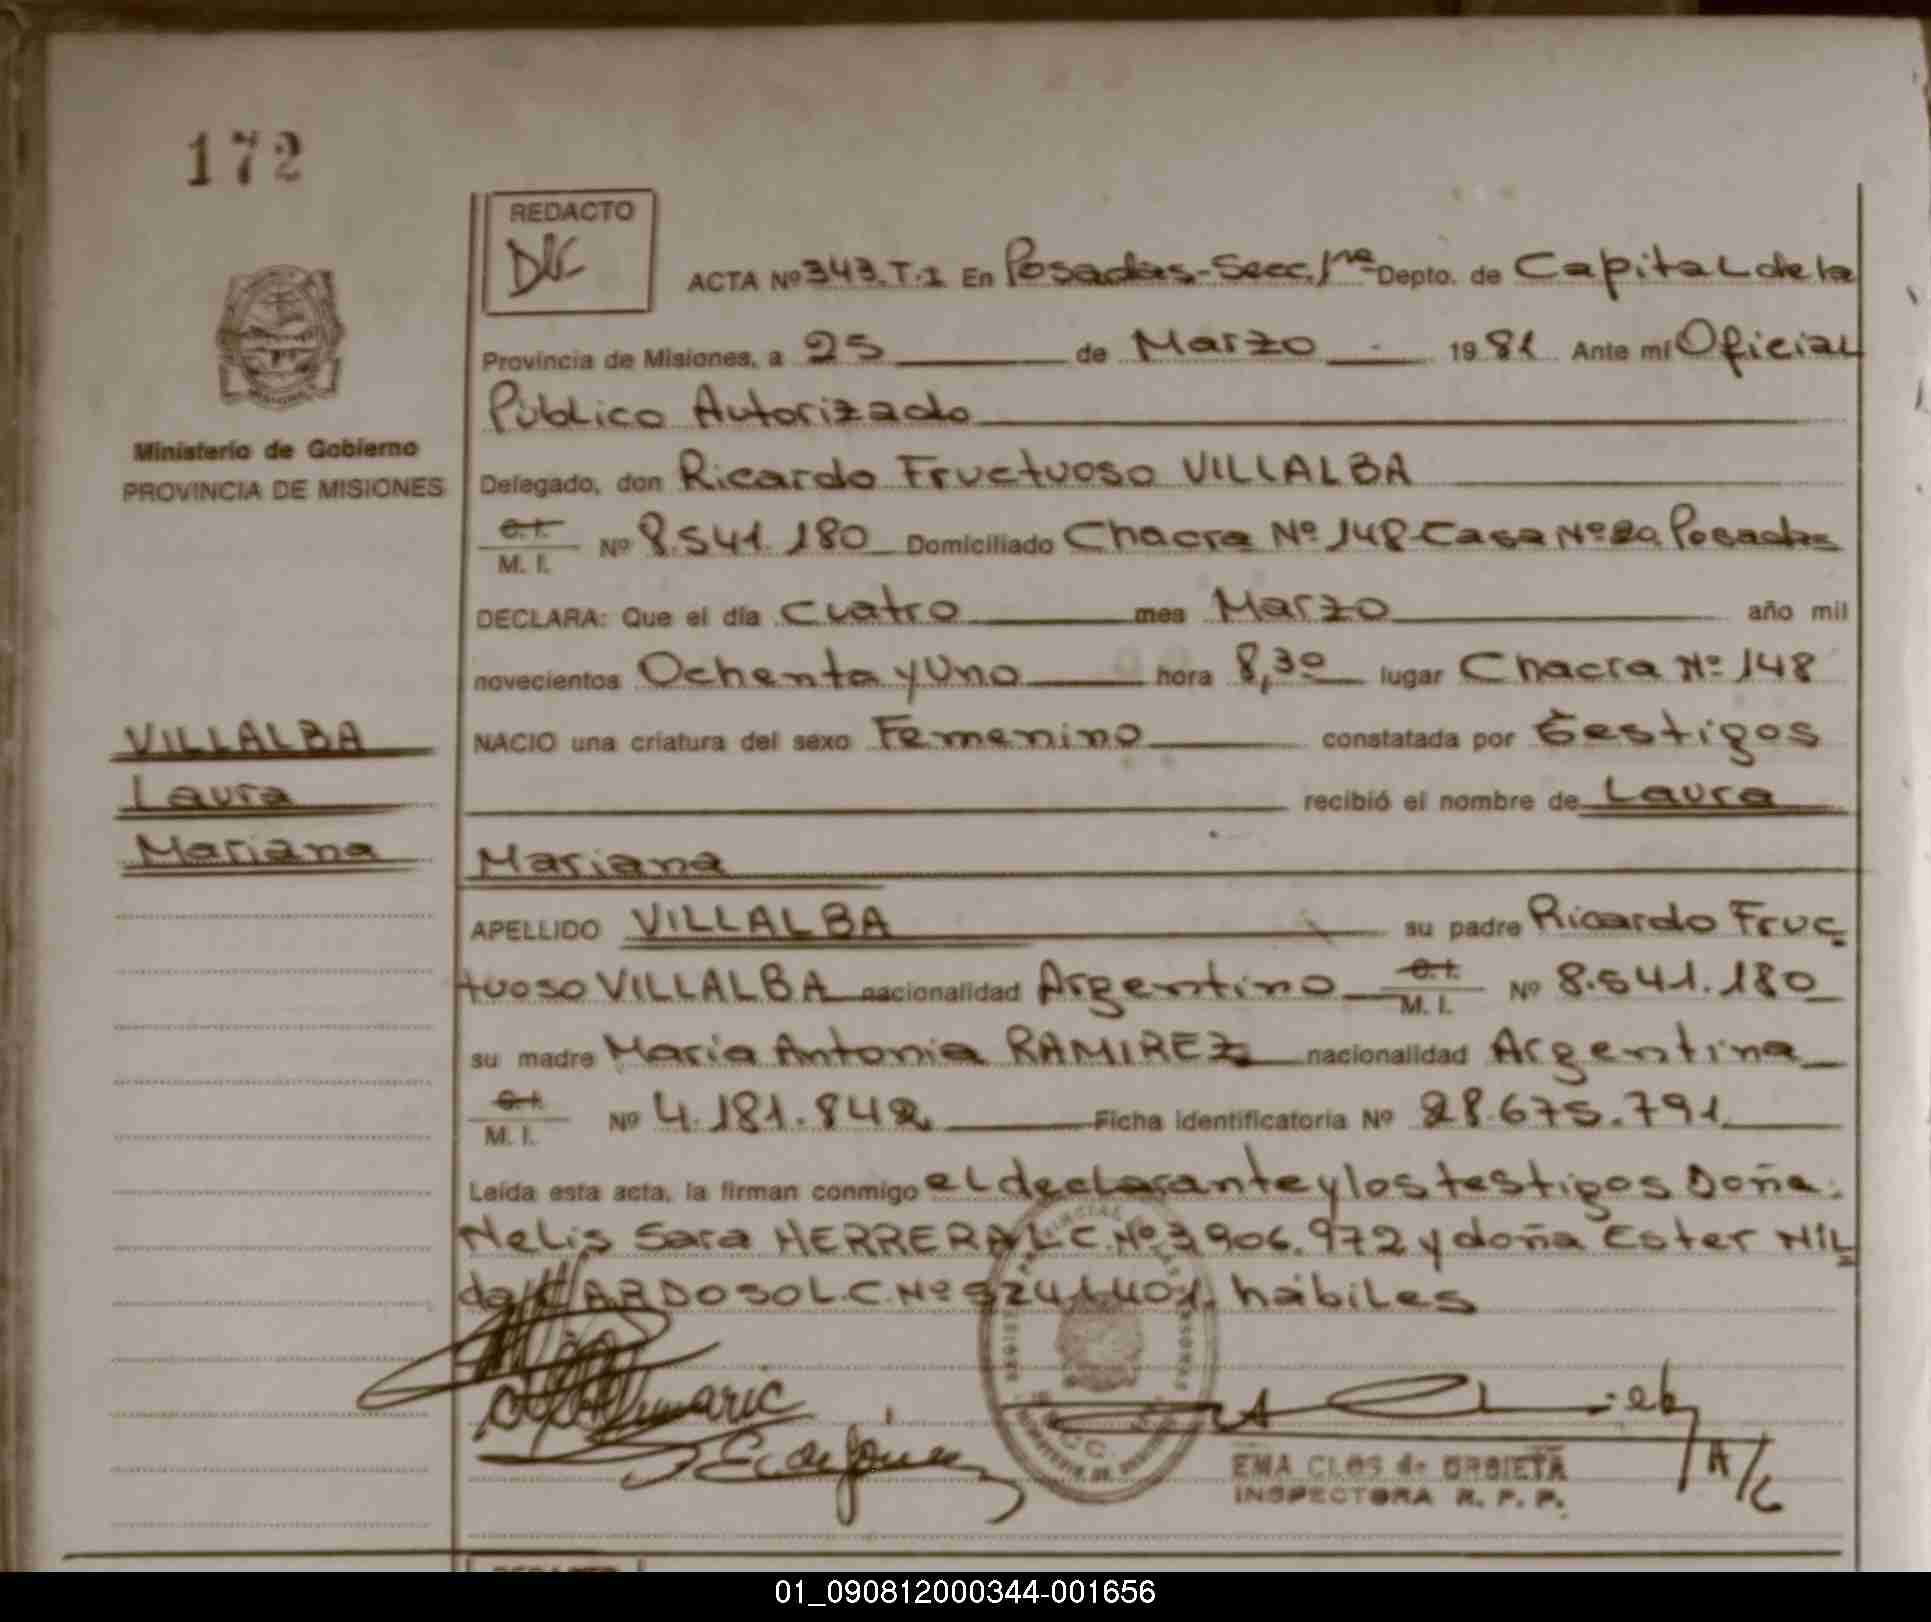 172
REDACTO
ACTA Nº 343.T.1 En Posadas-Secc.1ra Depto. de Capital de la
Provincia de Misiones, a 25 de Marzo 1981 Ante mí Oficial
Público Autorizado
Ministerio de Gobierno
PROVINCIA DE MISIONES
Delegado, don Ricardo Fructuoso VILLALBA
C.I.
M. I. Nº 8.541.180 Domiciliado Chacra Nº 148-Casa Nº 20. Posadas
DECLARA: Que el día Cuatro mes Marzo año mil
novecientos Ochenta y Uno hora 8,30 lugar Chacra Nº 148
VILLALBA
Laura
Mariana
NACIO una criatura del sexo Femenino constatada por testigos
recibió el nombre de Laura
Mariana
APELLIDO VILLALBA su padre Ricardo Fruc
tuoso VILLALBA nacionalidad Argentino C.I.
M. I. Nº 8.541.180
su madre Maria Antonia RAMIREZ nacionalidad Argentina
C.I.
M. I. Nº 4.181.842 Ficha identificatoria Nº 28.675.791
Leída esta acta, la firman conmigo el declarante y los testigos Doña
Nelis Sara HERRERA L.C. Nº 3906.972 y doña Ester Nil
da CARDOSO L.C. Nº 5241401. hábiles
EMA CLOS de URBIETA
INSPECTORA R. P. P.
01_090812000344-001656